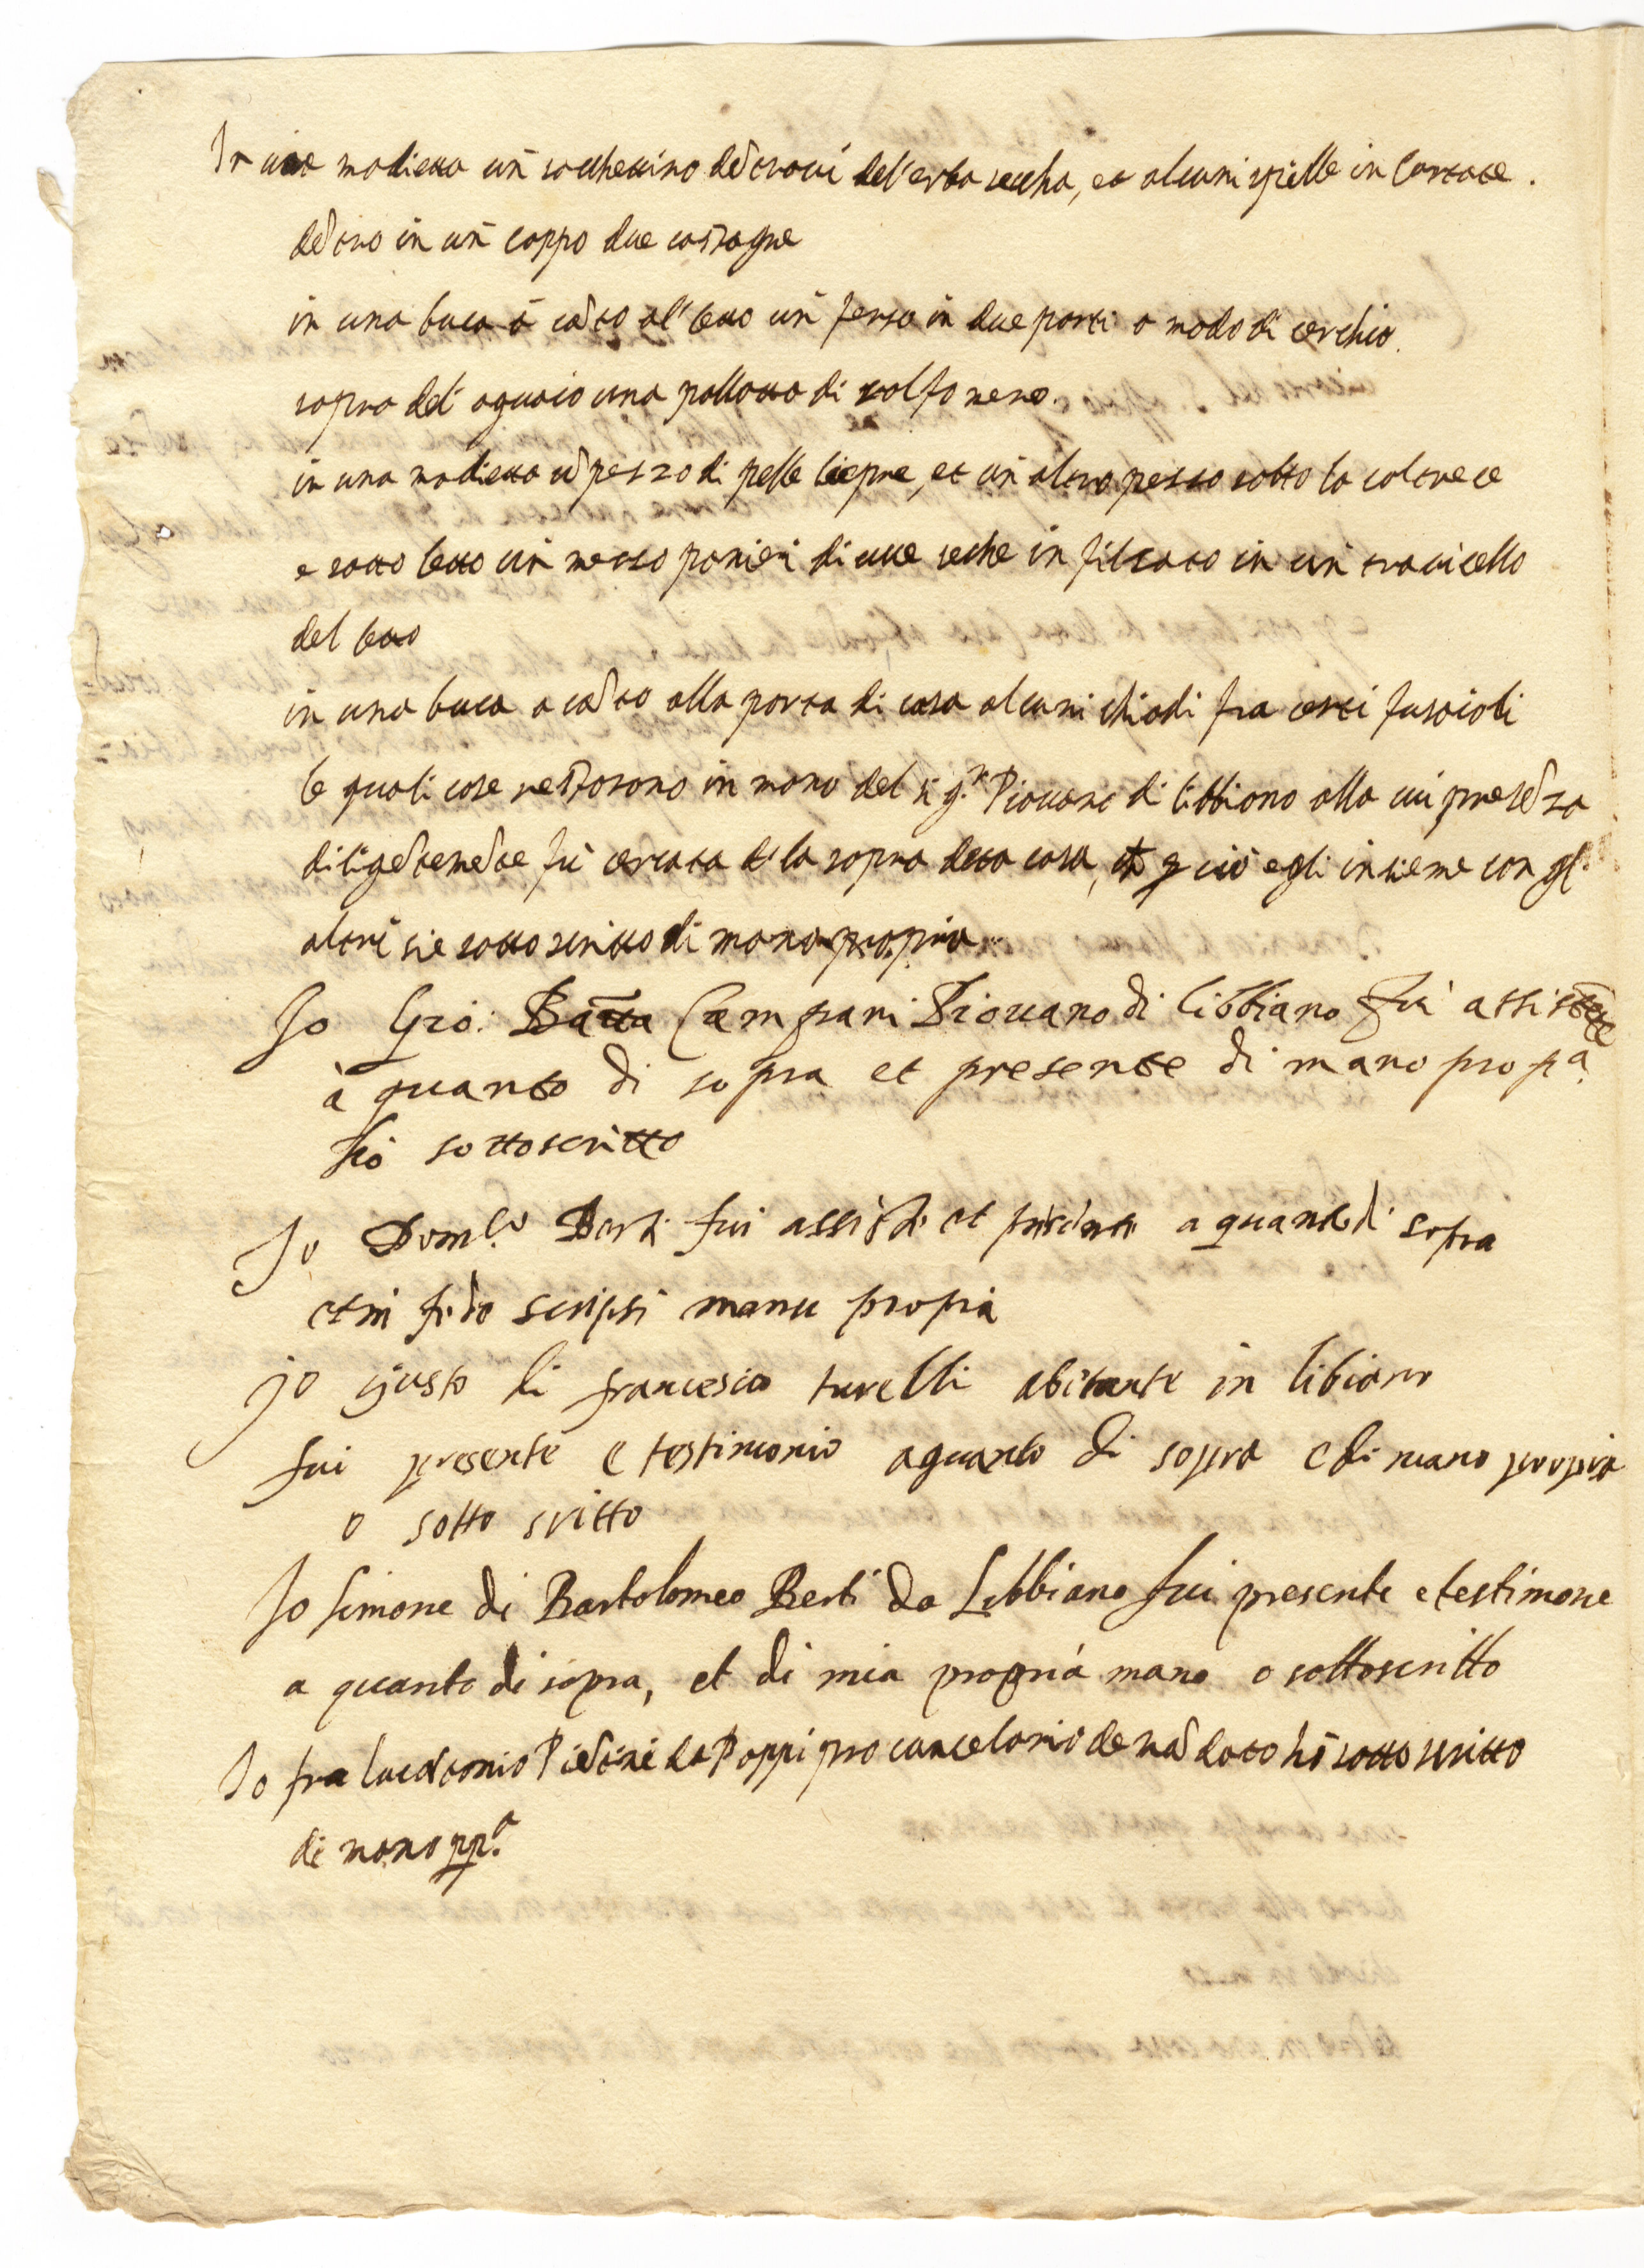 In una madietta un̄ sacchettino dētrovi del'erba seccha, et alcuni spille in Cartate.
dētro in un̄ coppo due castagne
in una buca à cāto al' letto un̄ ferro in due parti a modo di cerchio.
sopra del' aguaio una pallotta di solfo nero.
in una madietta ū pezzo di pelle liepre, et un̄ altro pezzo sotto la coltrece
e sotto letto un̄ mezzo panieri di uve seche in filzato in un̄ travicello
del letto
in una buca a cāto alla porta di casa alcuni chiodi fra certi fuscioli
le quali cose restorono in mano del sig.re Piovano di libbiano alla cui presēza
diligētemēte fù cercata de la sopra detta casa, et p ciò egli insieme con gl'
altri si e sotto scritto di mano propria.
Io Gio: Batta Campani Piovano di libbiano fui assistēte
à quanto di sopra et presente di mano prop.a
hò sottoscritto
Io Dom.co Berti fui assistēte et presente a quanto di sopra
et in fede scripsi manu propria
jo giusto di francesco turelli abitante in libiano
fui presente e testimonio aquanto di sopra e di mano propria
o sotto scritto
Io simone di Bartolomeo Berti da Libbiano fui presente e testimone
a quanto di sopra, et di mia propria mano o sottoscritto
Io fra lucātonio Piētini da Poppi pro cancelario de mādato hò sotto scritto
di mano pp.a